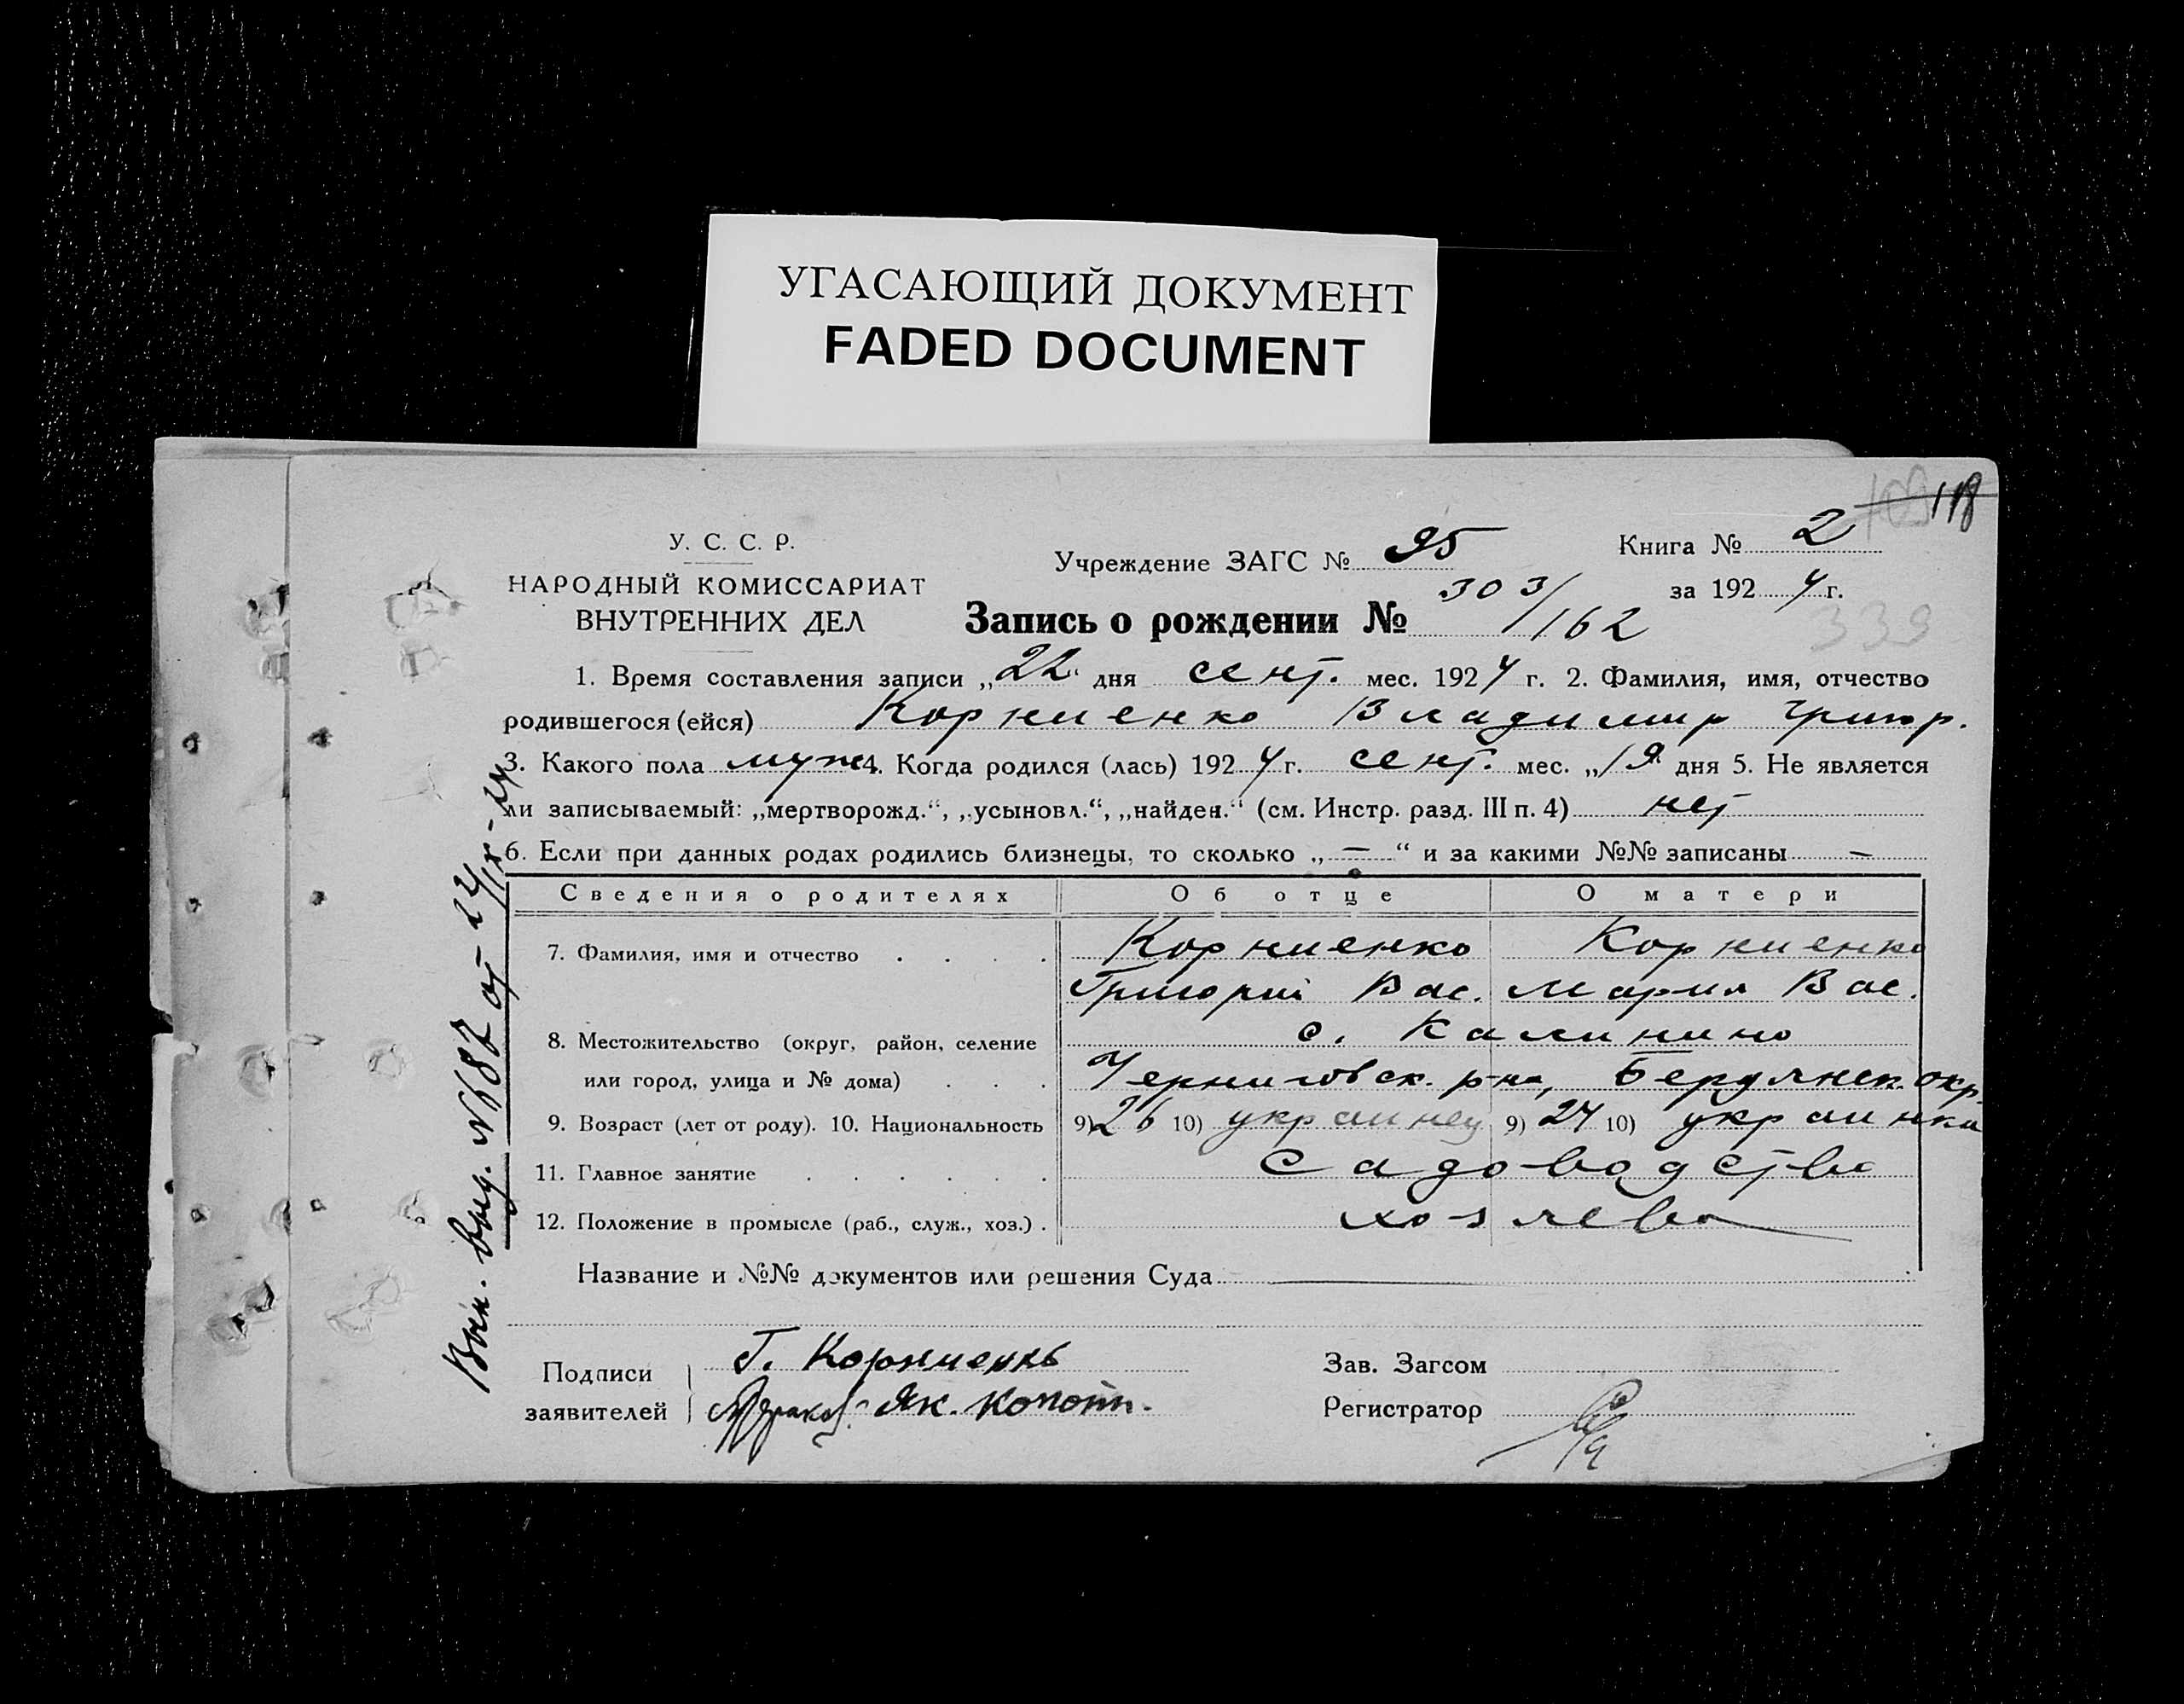 УГАСАЮЩИЙ ДОКУМЕНТ
FADED DOCUMENT
118
У. С. С. Р.
НАРОДНЫЙ КОМИССАРИАТ
ВНУТРЕННИХ ДЕЛ
Учреждение ЗАГС № 95
Книга № 2
за 1924 г.
Запись о рождении № 303/162
339
1. Время составления записи „22“ дня сент. мес. 1924 г. 2. Фамилия, имя, отчество
родившегося (ейся) Корниенко Владимир Григор.
3. Какого пола муж 4. Когда родился (лась) 1924 г. сент. мес. „19 дня 5. Не является
ли записываемый: „мертворожд.“, „усыновл.“, „найден.“ (см. Инстр. разд. III п. 4) нет
6. Если при данных родах родились близнецы, то сколько „—“ и за какими №№ записаны —
Сведения о родителях Об отце О матери
7. Фамилия, имя и отчество . . . . Корниенко Корниенко
Григорий Вас. Мария Вас.
8. Местожительство (округ, район, селение с. Калинино
или город, улица и № дома) . . . Черниговск. р-на, Бердянск. окр.
9. Возраст (лет от роду). 10. Национальность 9) 26 10) украинец 9) 24 10) украинка
11. Главное занятие . . . . . . садоводство
12. Положение в промысле (раб., служ., хоз.) . хозяева
Название и №№ документов или решения Суда
Подписи
заявителей
Г. Корниенко
Як. Копоть.
Зав. Загсом
Регистратор
Вып. выд. № 687 от 24/